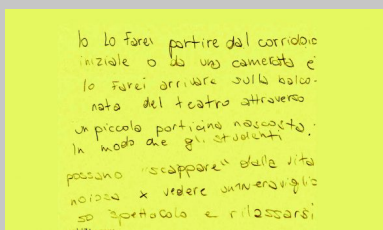 Io lo farei partire dal corridoio
iniziale o da una camerata e
lo farei arrivare sulla balco-
nata del teatro attraverso
un piccola porticina nascosta.
In modo che gli studenti
possano "scappare" dalla vita
noiosa x vedere un meraviglio
so spettacolo e rilassarsi